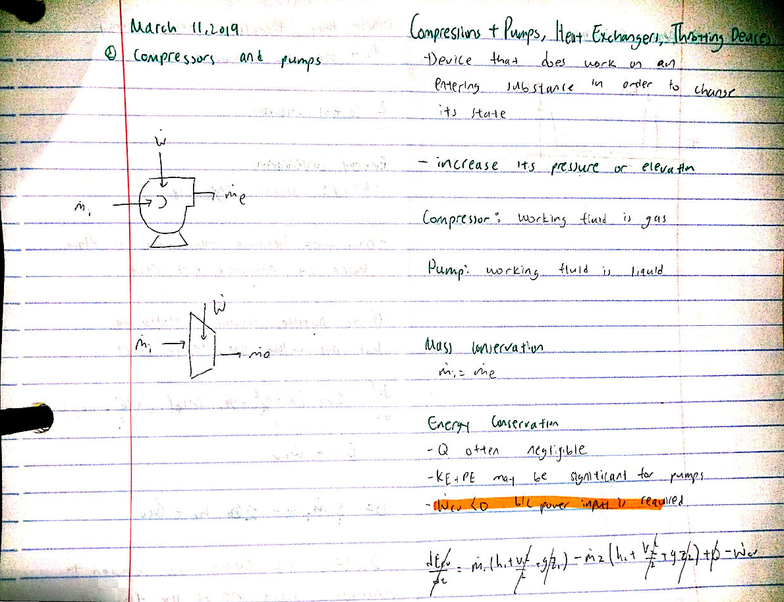 March 11, 2019
Compressions + Pumps, Heat Exchangers, Throttling Devices
① Compressors and pumps
- Device that does work on an
entering substance in order to change
its state
- increase its pressure or elevation
Compressor: working fluid is gas
Pump: working fluid is liquid
Ẇ
ṁi
ṁe
Ẇ
ṁi
ṁe
Mass Conservation
ṁi = ṁe
Energy Conservation
- Q often negligible
- KE + PE may be significant for pumps
- Ẇcv < 0 b/c power input is required
dEcv/dt = ṁ1 (h1 + V1²/2 + gz1) - ṁ2 (h2 + V2²/2 + gz2) + Q̇ - Ẇcv